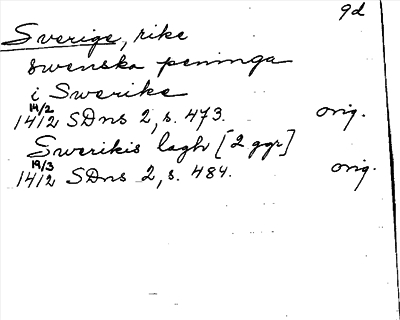 9d
Sverige, rike
swenska peninga
i Swerike
19/2
1412 SDns 2, s. 473. orig.
Swerikis lagh [2 ggr]
19/3
1412 SDns 2, s. 484. orig.